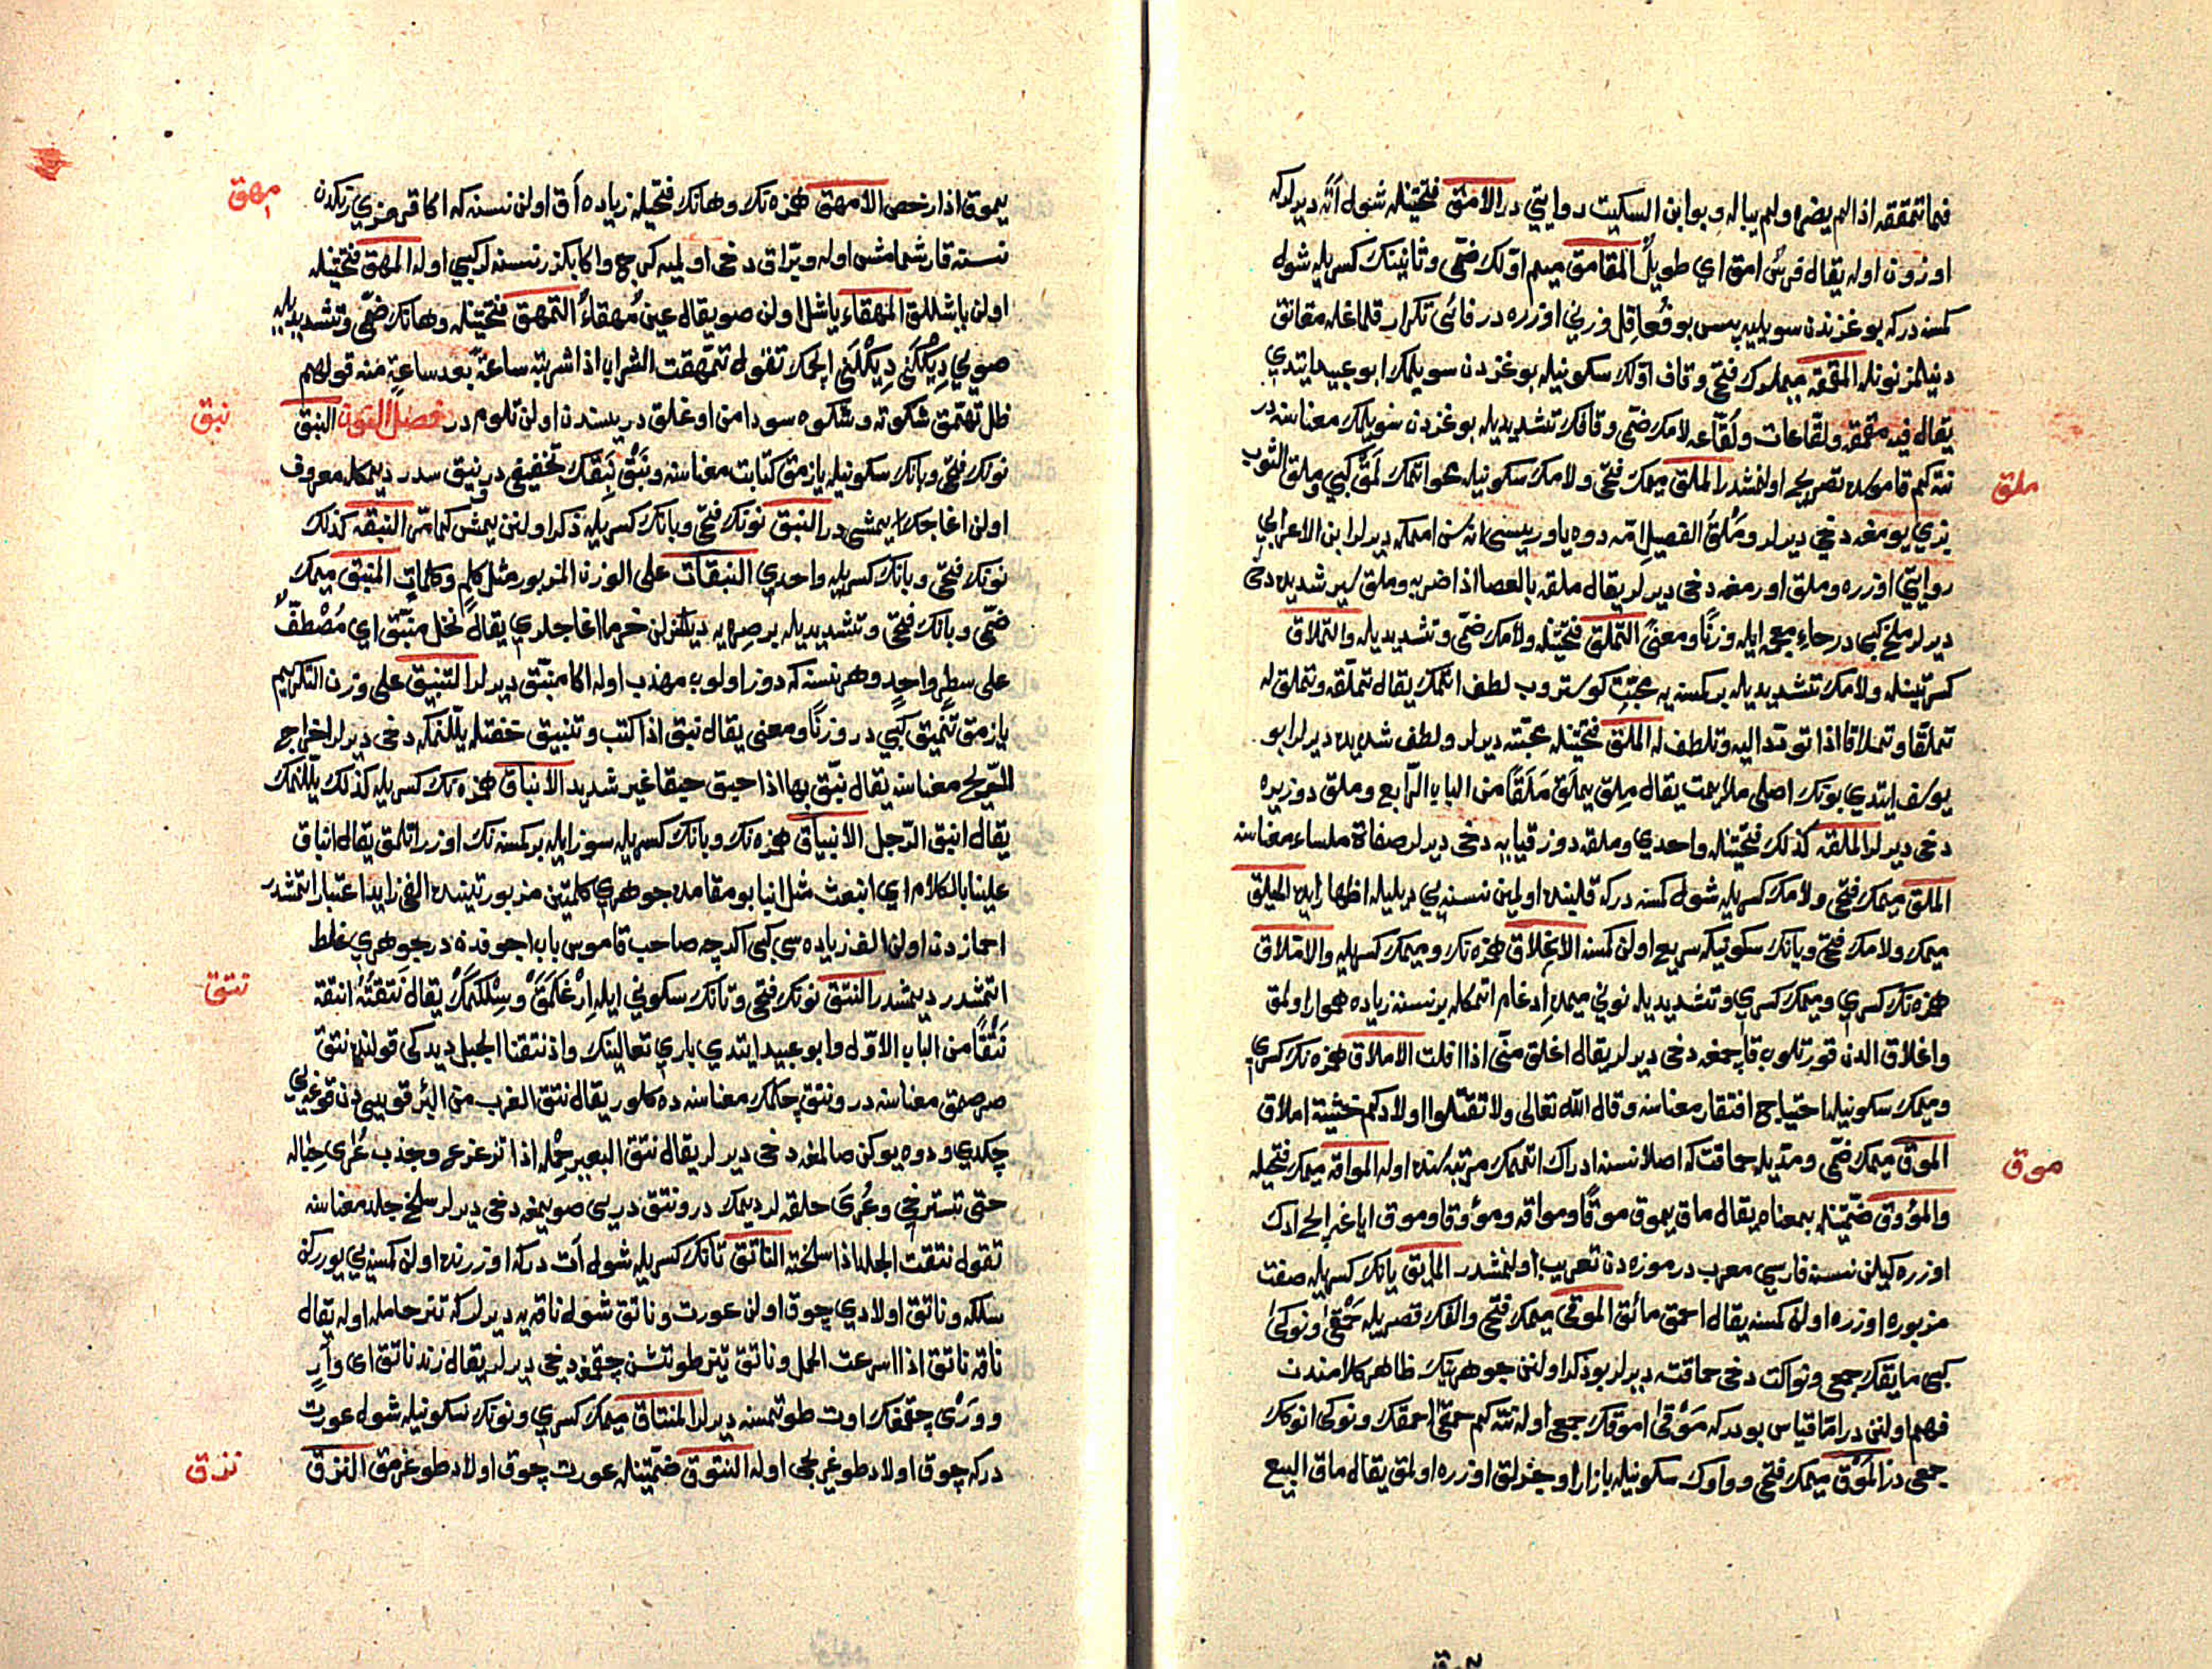 فما تمققه اذا لم يضره ولم يباله وبو ابن السكيت روايتي در الامق فتحتينله شول آته ديرلركه
اوزون اوله يقال فرس امق اي طويل المقامق ميم اولك ضمي وثانينك كسريله شول
كمسنه دركه بوغزندن سويليه پس بو فعافل وزني اوزره در فائي تكرار قلماغله مقانق
دنيلمز نونله المققه ميملرك فتحي وقاف اولك سكونيله بوغزدن سويلمك ابو عبيد ايتدي
يقال فيه مقمقه ولقاعات ولقاعه لامك ضمي وقافك تشديديله بوغزدن سويلمك معناسنه در
نته كم قاموسده تصريح اولنمشدر الملق ميمك فتحي ولامك سكونيله محو اتمك لمق كبي وملق الثوب
بزي يومغه دخي ديرلر وملق الفصيل امه دوه ياوريسي اناسن اممكه ديرلر ابن الاعرابي
روايتي اوزره وملق اورمغه دخي ديرلر يقال ملقه بالعصا اذا ضربه وملق سير شديده دخي
ديرلر ملخ كبي در حاء معجمه ايله وزنا ومعنى التملق فتحتينله ولامك ضمي وتشديديله والتملاق
كسرتينله ولامك تشديديله بر كمسنه يه محبت كوستروب لطف اتمك يقال تملقه وتملق له
تملقا وتملاقا اذا تودد اليه وتلطف له الملق فتحتينله محبته ديرلر ولطف شديده ديرلر ابو
يوسف ايتدي بونك اصلي ملايمت يقال ملق يملق ملقا من الباب الرابع وملق دوز يره
دخي ديرلر الملقه كذلك فتحتينله واحدي وملقه دوز قيايه دخي ديرلر صفاة ملساء معناسنه
الملق ميمك فتحي ولامك كسريله شول كمسنه دركه قلبنده اولمين نسنه يي ديليله اظهار ايده الميلق
ميمك ولامك فتحي ويانك سكونيله سريع اولن كمسنه الانملاق همزه نك وميمك كسريله والاملاق
همزه نك كسري وميمك كسري وتشديديله نوني ميمه ادغام اتمكله بر نسنه زياده هموار اولمق
واغلاق الدن قورتلوب قاچمغه دخي ديرلر يقال املق مني اذا افلت الاملاق همزه نك كسري
وميمك سكونيله احتياج افتقار معناسنه وقال الله تعالى ولا تقتلوا اولادكم خشية املاق
الموق ميمك ضمي ومديله حماقت كه اصلا نسنه ادراك اتممك مرتبه سنده اوله المواقه ميمك فتحيله
والمؤوق ضمتينله بمعناه يقال ماق يموق موقا ومواقه ومؤوقا وموق اياغه ايچ ادك
اوزره كيلن نسنه فارسي معرب در موزه دن تعريب اولنمشدر المايق يانك كسريله صفت
مزبوره اوزره اولن كمسنه يقال احمق مائق الموقى ميمك فتحي والفك قصريله حمقى ونوكى
كبي مايقك جمعي ونواكت دخي حماقته ديرلر بو ذكر اولنن جوهرينك ظاهر كلامندن
فهم اولنن در اما قياس بودركه موقى اموقك جمعي اوله نته كم حمقى احمقك ونوكى انوكك
جمعي در الموق ميمك فتحي وواوك سكونيله بازار اوجزلق اوزره اولمق يقال ماق البيع
ملق
موق
يموق اذا رخص الامهق همزه نك وهانك فتحيله زياده آق اولن نسنه كه اكا قرمزي رنكدن
نسنه قارشمامش اوله ويراق دخي اولميه كرج واكا بكزر نسنه لر كبي اوله المهق فتحتينله
اولن ياشللق المهقاء ياشل اولن صو يقال عين مهقاء التمهق فتحتينله وهانك ضمي وتشديديله
صويي ديكلني ديكلني ايچمك تقول تمهقت الشراب اذا شربته ساعة بعد ساعة منه قولهم
ظل تهمق شكوته وشكوه سود امن اوغلق دريسندن اولن تلوم در فصل النون النبق
نونك فتحي وبانك سكونيله يازمق كتابت معناسنه ونبق نبقك تخفيفي در نبق سدر ديمكله معروف
اولن اغاجك يمشي در النبق نونك فتحي وبانك كسريله ذكر اولنن يمش كما مر النبقه كذلك
نونك فتحي وبانك كسريله واحدي النبقات على الوزن المزبور مثل كلم وكلمات المنبق ميمك
ضمي وبانك فتحي وتشديديله بر صره يه ديكلن خرما اغاجلري يقال نخل منبق اي مصطف
على سطر واحد وهر نسنه كه دوز اولوب مهذب اوله اكا منبق ديرلر التنبيق على وزن التكريم
يازمق تنميق كبي در وزنا ومعنى يقال نبق اذا كتب وتنبيق خفتله يللنمكه دخي ديرلر اخراج
الريح معناسنه يقال نبق بها اذا حبق حبقا غير شديد الانباق همزه نك كسريله كذلك يللنمك
يقال انبق الرجل الانبياق همزه نك وبانك كسريله سوز ايله بر كمسنه نك اوزراتلمق يقال انباق
علينا بالكلام اي انبعث مثل انباع بو مقامده جوهري كلمتين مزبورتينده الفي زايد اعتبار اتمشدر
احماز دن اولن الف زياده سي كبي اكرچه صاحب قاموس باب اجوفدنه در جوهري غلط
اتمشدر ديمشدر النتق نونك فتحي وتانك سكوني ايله ارغلمق وسلكمك يقال نتقته انتقه
نتقا من الباب الاول وابو عبيد ايتدي باري تعالينك واذ نتقنا الجبل ديدكي قولنده نتق
صرصمق معناسنه در ونتق چكمك معناسنه ده كلور يقال نتق الغرب من البئر قويي دن قوغه يي
چكدي ودوه يوكن صالمغه دخي ديرلر يقال نتق البعير حمله اذا تزعزع وجذب عرى حباله
حتى تسترخي وعرى حلقه لر ديمك در ونتق دريي صويمغه دخي ديرلر سلخ جلد معناسنه
تقول نتقت الجلد اذا سلخته الناتق تانك كسريله شول آت دركه اوزرنده اولن كمسنه يي يوررك
سلكه وناتق اولادي چوق اولن عورت وناتق شول ناقه يه ديرلركه تز حامله اوله يقال
ناقه ناتق اذا اسرعت الحمل وناتق تيز طوتشن چقمغه دخي ديرلر يقال زند ناتق اي وار
وورى چقمقك اوت طوتمسنه ديرلر المنتاق ميمك كسري ونونك سكونيله شول عورت
دركه چوق اولاد طوغريجي اوله النتوق ضمتينله عورت چوق اولاد طوغرمق النزق
امهق
نبق
نتق
نزق